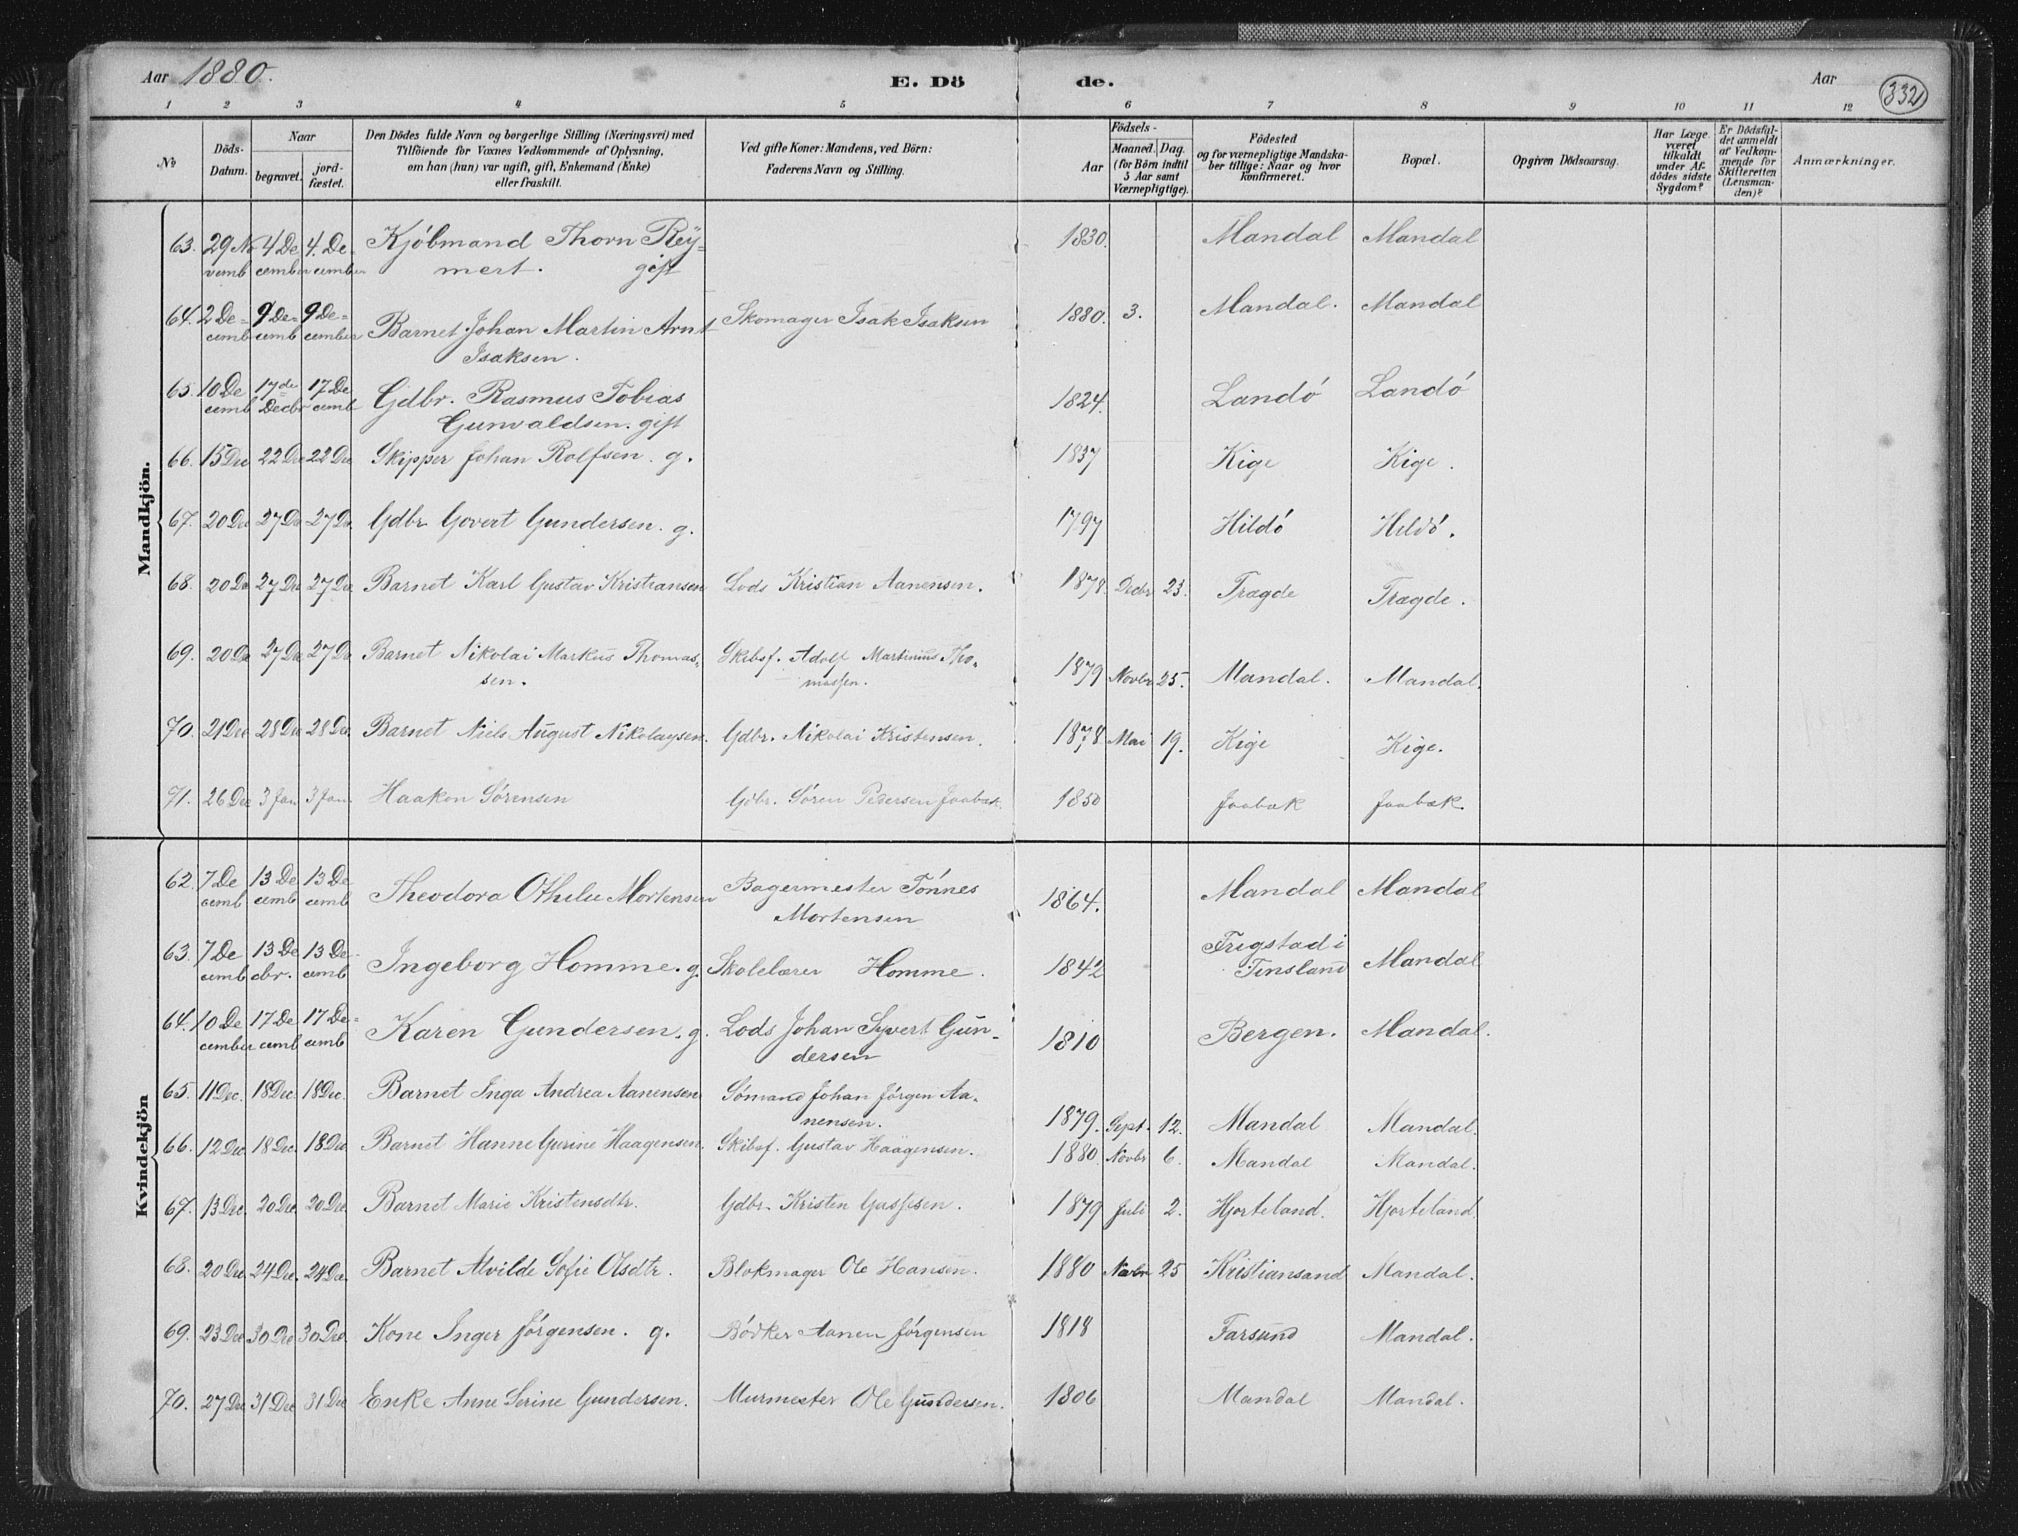 Aar 1880. E. Dö de. Aar 332
1 2 3 4 5 6 7 8 9 10 11 12
No
Döds-Datum.
Naar
begravet.
jordfæstet.
Den Dödes fulde Navn og borgerlige Stilling (Næringsvei) med
Tilföiende for Voxnes Vedkommende af Oplysning,
om han (hun) var ugift, gift, Enkemand (Enke)
eller fraskilt.
Ved gifte Koner: Mandens, ved Börn:
Faderens Navn og Stilling.
Födsels-
Aar
Maaned. Dag.
(for Börn indtil
5 Aar samt
Værnepligtige).
Födested
og for værnepligtige Mandska-
ber tillige: Naar og hvor
konfirmeret.
Bopæl.
Opgiven Dödsaarsag.
Har Læge
været
tilkaldt
under Af-
dödes sidste
Sygdom?
Er Dödsfal-
det anmeldt
af Vedkom-
mende for
Skifteretten
(Lensman-
den)?
Anmærkninger.
Mandkjön.
63. 29 No 4 De 4. De- Kjöbmand Thorn Rey- 1830. Mandal Mandal
vemb cember cember mert. gift
64. 2 De= 9 De= 9 De= Barnet Johan Martin Arnt Skomager Isak Isaksen 1880. 3. Mandal. Mandal
cemb cemb cember Isaksen.
65. 10 De 17de 17 De Gdbr. Rasmus Tobias 1824. Landö Landö
cemb Decbr cemb Gunvaldsen. gift
66. 15 Dec 22 Dec 22 Dec Skipper Johan Rolfsen. g. 1837 Kige Kige.
67. 20 Dec 27 De 27 De. Gdbr Govert Gundersen. g. 1797 Hildö Hildö.
68. 20 De 27 Dec 27 Dec Barnet Karl Gustav Kristiansen Lods Kristian Aanensen. 1878. Decbr 23. Trægde Trægde.
69. 20 De 27 Dec 27 De Barnet Nikolai Markus Thomas- Skibsf. Adolf Martinius Tho- 1879 Novbr 25. Mandal. Mandal.
sen. massen.
70. 21 Dec 28 Dec 28 Dec. Barnet Niels August Nikolaysen. Gdbr. Nikolai Kristensen. 1878 Mai 19. Kige Kige.
71. 26 Dec 3 Jan 3 Jan. Haakon Sörensen Gdbr. Sören Pedersen Jaabæk. 1850 Jaabæk Jaabæk.
Kvindekjön
62. 7 De 13 De 13 De- Theodora Othilie Mortensen Bagermester Tönnes 1864. Mandal Mandal
cemb cemb cemb Mortensen
63. 7 De 13 De 13 De- Ingeborg Homme. g. Skolelærer Homme. 1842 Frigstad i Mandal
cemb cbr. cemb Finsland
64. 10 De 17 De 17 De- Karen Gundersen. g. Lods Johan Syvert Gun- 1810 Bergen. Mandal.
cember cemb cemb dersen
65. 11 Dec. 18 Dec. 18 Dec. Barnet Inga Andrea Aanensen Sömand Johan Jörgen Aa- 1879. Sept. 12. Mandal Mandal.
nensen.
66. 12 Dec 18 Dec. 18 Dec Barnet Hanne Gurine Haagensen. Skibsf. Gustav Haagensen. 1880. Novbr 6. Mandal Mandal.
67. 13 Dec 20 Dec. 20 Dec. Barnet Marie Kristensdtr. Gdbr. Kristen Gassesen. 1879 Juli 2. Hjorteland. Hjorteland.
68. 20 Dec 24 Dec. 24 Dec. Barnet Alvilde Sofie Olsdtr. Blokmager Ole Hansen. 1880 Novbr 25 Kristiansand Mandal.
69. 23 Dec 30 Dec 30 Dec. Kone Inger Jörgensen. g. Bödker Aanen Jörgensen 1818 Farsund Mandal.
70. 27 Dec 31 Dec 31 Dec Enke Anne Serine Gundersen. Murmester Ole Gundersen. 1806 Mandal Mandal.